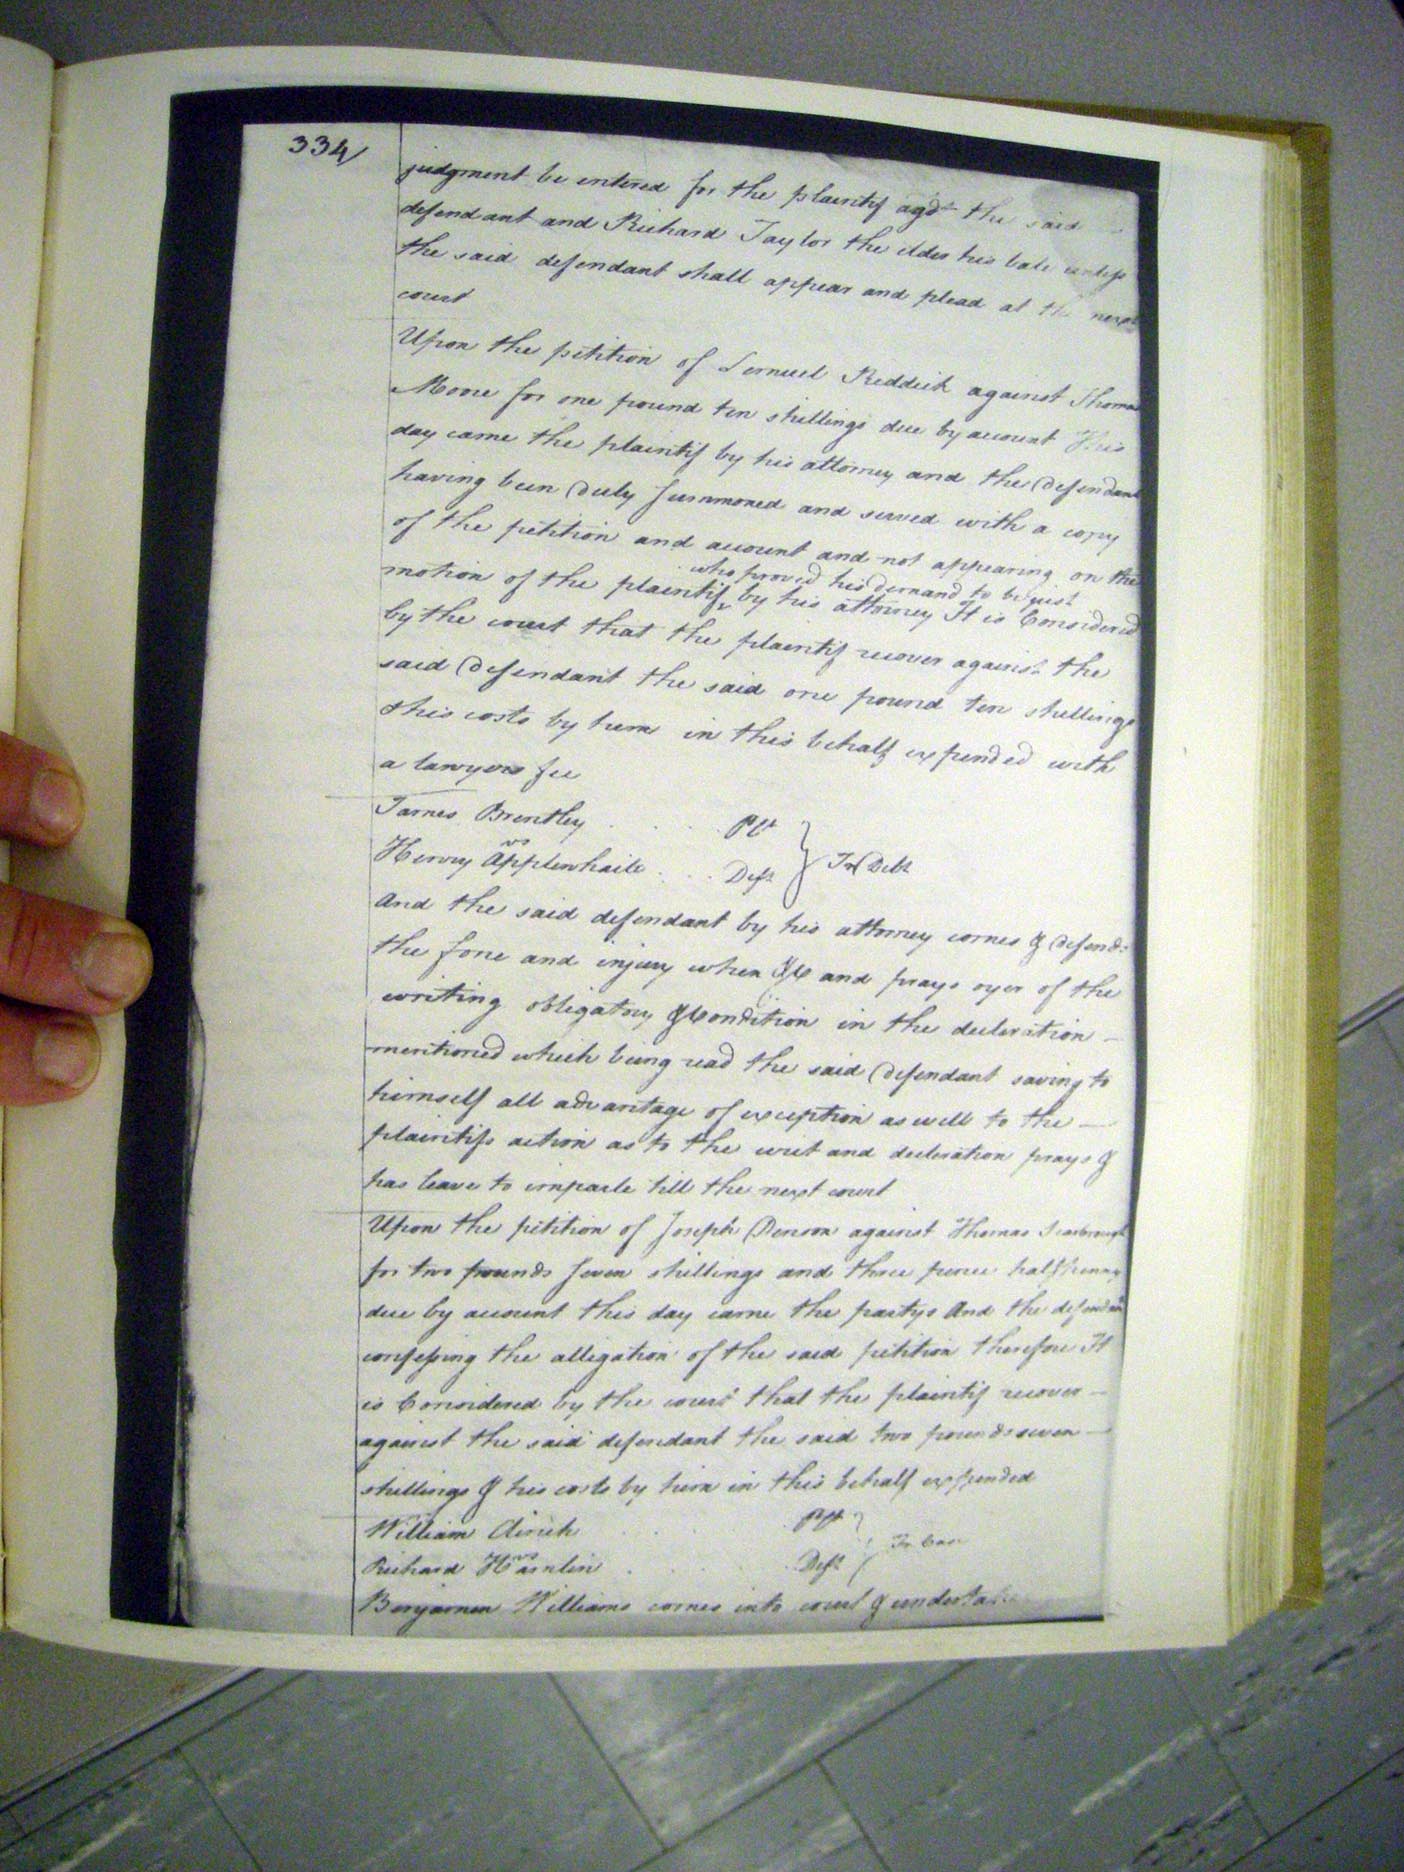 334
judgment be entered for the plaintif agst the said
defendant and Richard Taylor the elder his bale unless
the said defendant shall appear and plead at the next
court
Upon the petition of Lemuel Reddick against Thomas
Moore for one pound ten shillings due by account This
day came the plaintif by his attorney and the Defendant
having been Duly summoned and served with a copy
of the petition and account and not appearing on the
who proved his Demand to be just
motion of the plaintif by his attorney It is Considered
by the court that the plaintif recover against the
said Defendant the said one pound ten shillings
& his costs by him in this behalf expended with
a lawyers fee
James Brentley Plt
vs In Debt
Henry Applewhaite Deft
And the said defendant by his attorney comes & Defends
the force and injury when &c and prays oyer of the
writing obligatory & Condition in the decleration
mentioned which being read the said Defendant saving to
himself all advantage of exception as well to the
plaintifs action as to the writ and decleration prays &
has leave to imparle till the next court
Upon the petition of Joseph Denson against Thomas Scarbrough
for two pounds seven shillings and three pence halfpenny
due by account this day came the partys And the defendant
confessing the alligation of the said petition therefore It
is Considered by the court that the plaintif recover
against the said defendant the said two pounds seven
shillings & his costs by him in this behalf expended
William Plt
vs In Case
Richard Hamlin Deft
Benjamen Williams comes into court & undertakes